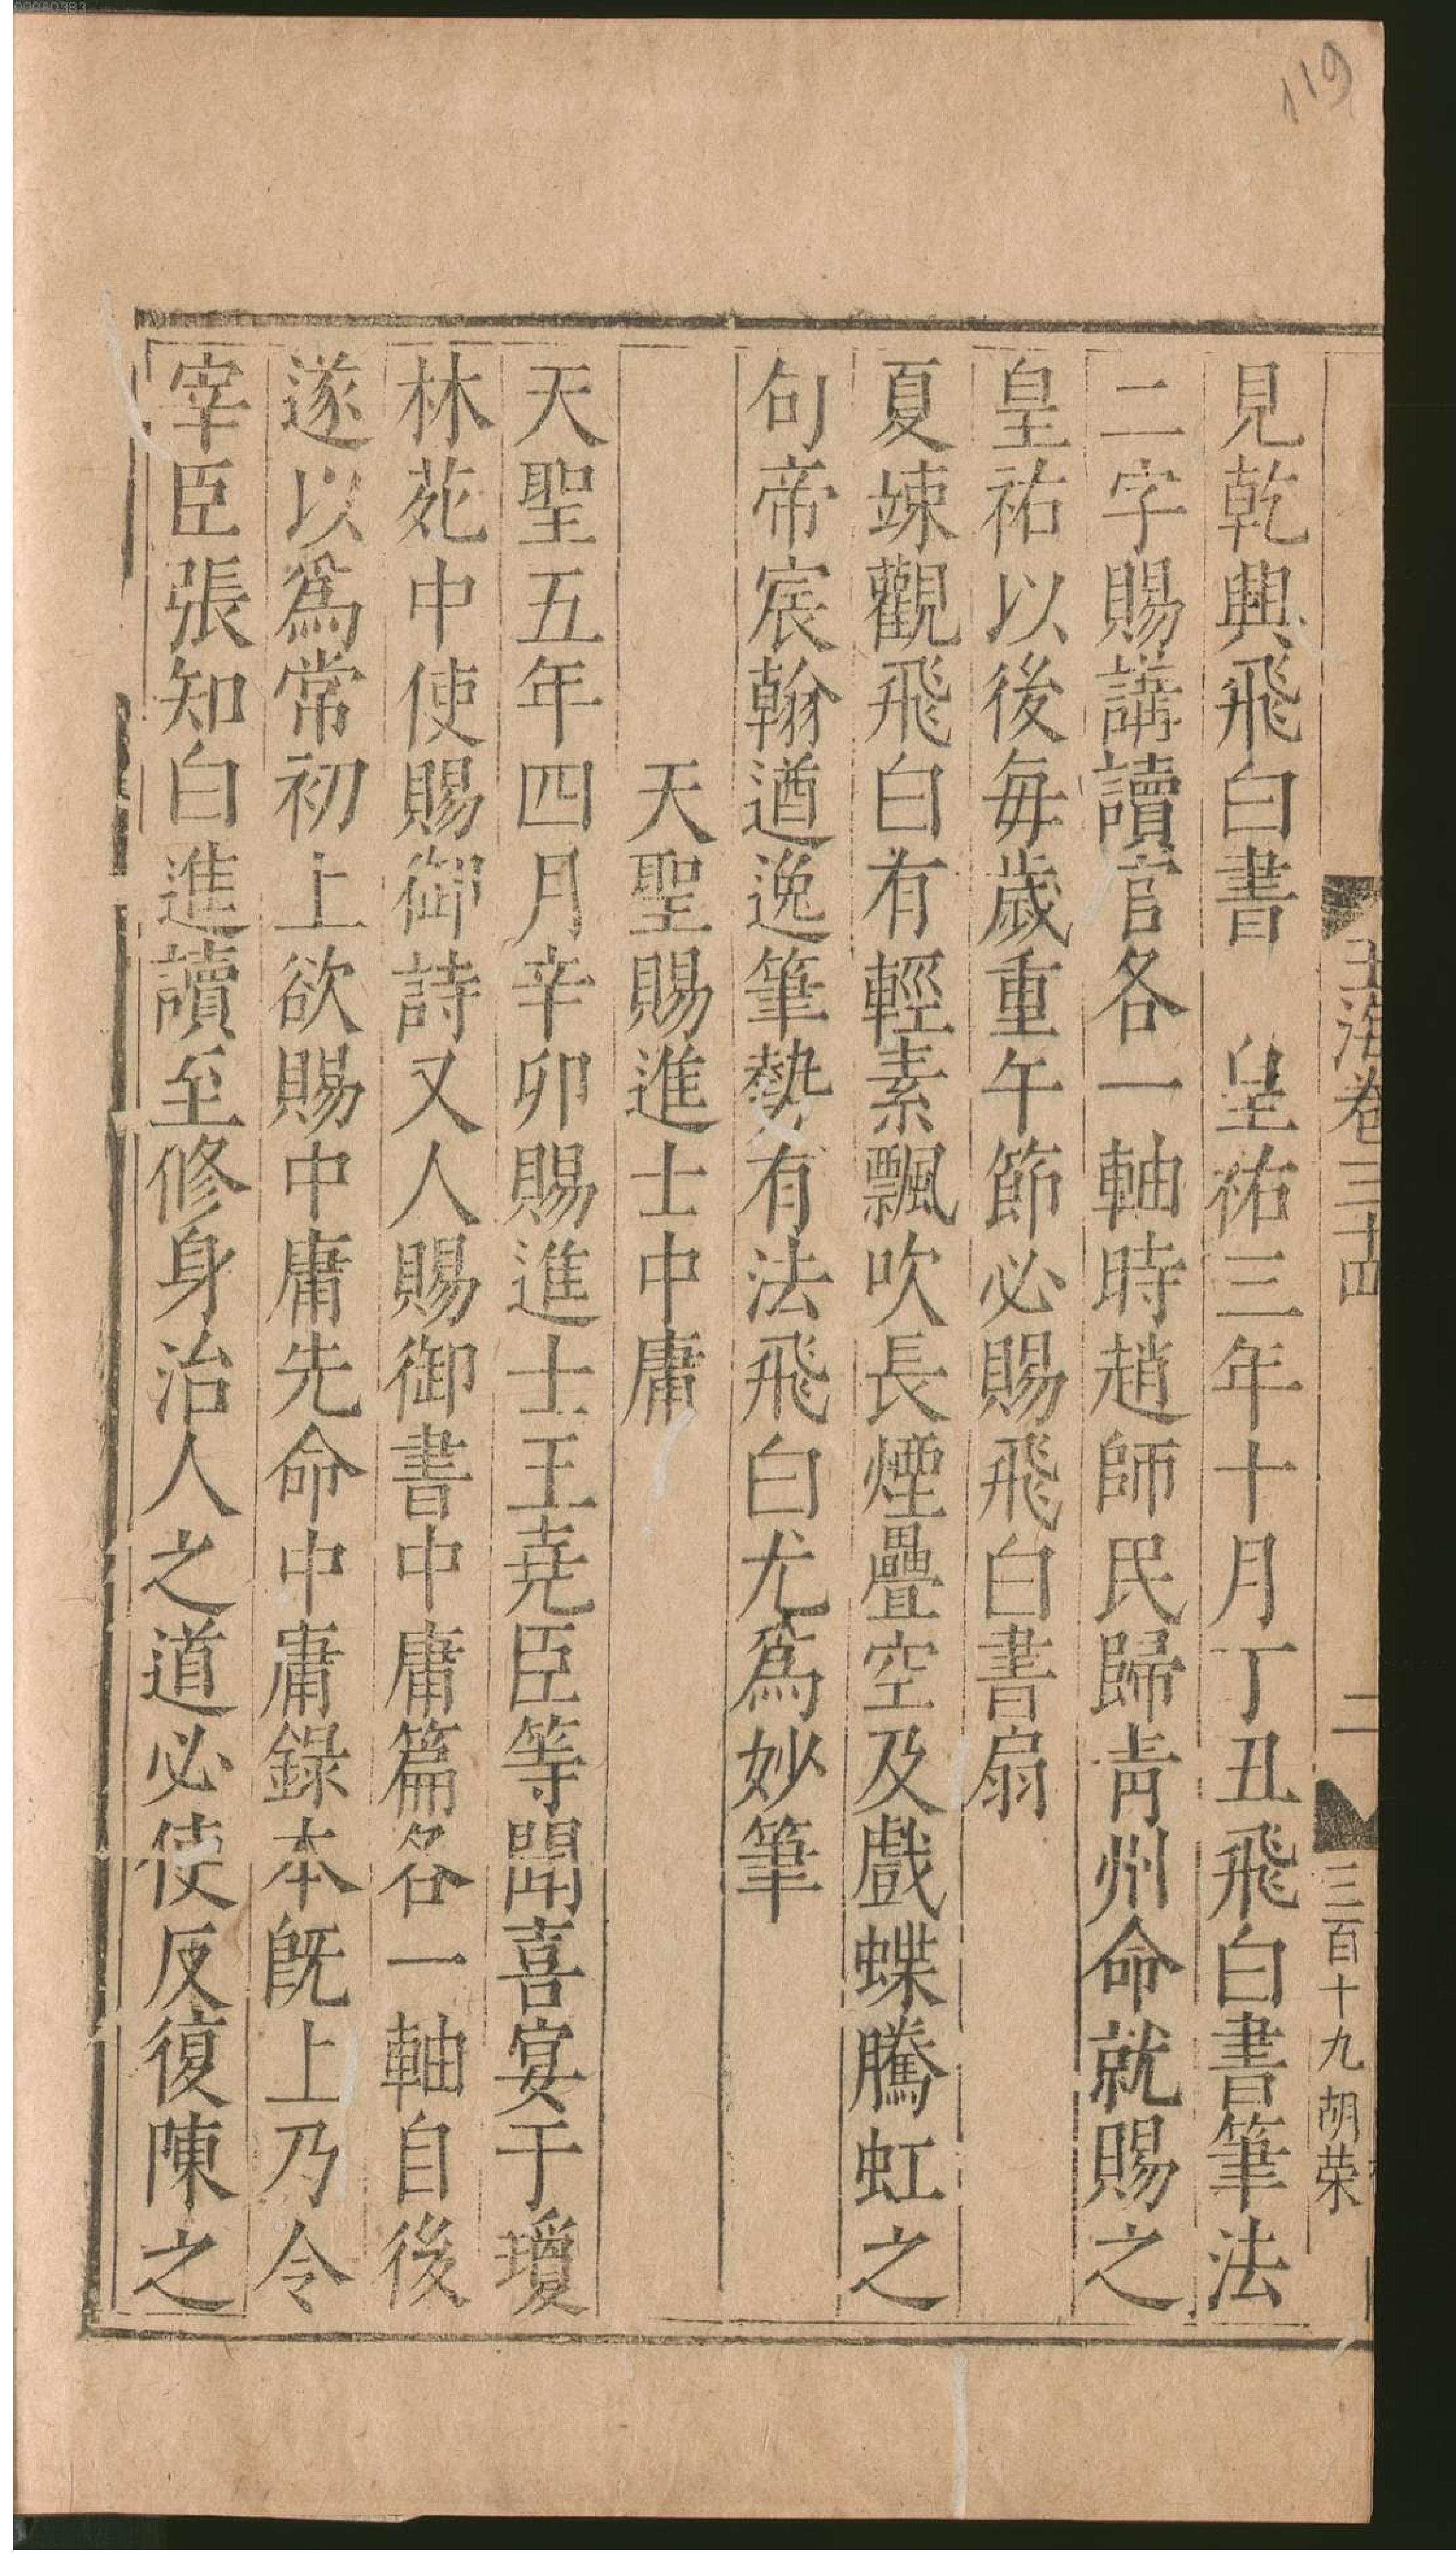 119
玉海卷三十四
二
三百十九 胡荣
見乾興飛白書 皇祐三年十月丁丑飛白書筆法
二字賜講讀官各一軸時趙師民歸青州命就賜之
皇祐以後每歲重午節必賜飛白書扇
夏竦觀飛白有輕素飄吹長煙疊空及戲蝶騰虹之
句帝宸翰遒逸筆勢有法飛白尤爲妙筆
天聖賜進士中庸
天聖五年四月辛卯賜進士王堯臣等聞喜宴于瓊
林苑中使賜御詩又人賜御書中庸篇各一軸自後
遂以爲常初上欲賜中庸先命中庸錄本旣上乃令
宰臣張知白進讀至修身治人之道必使反復陳之